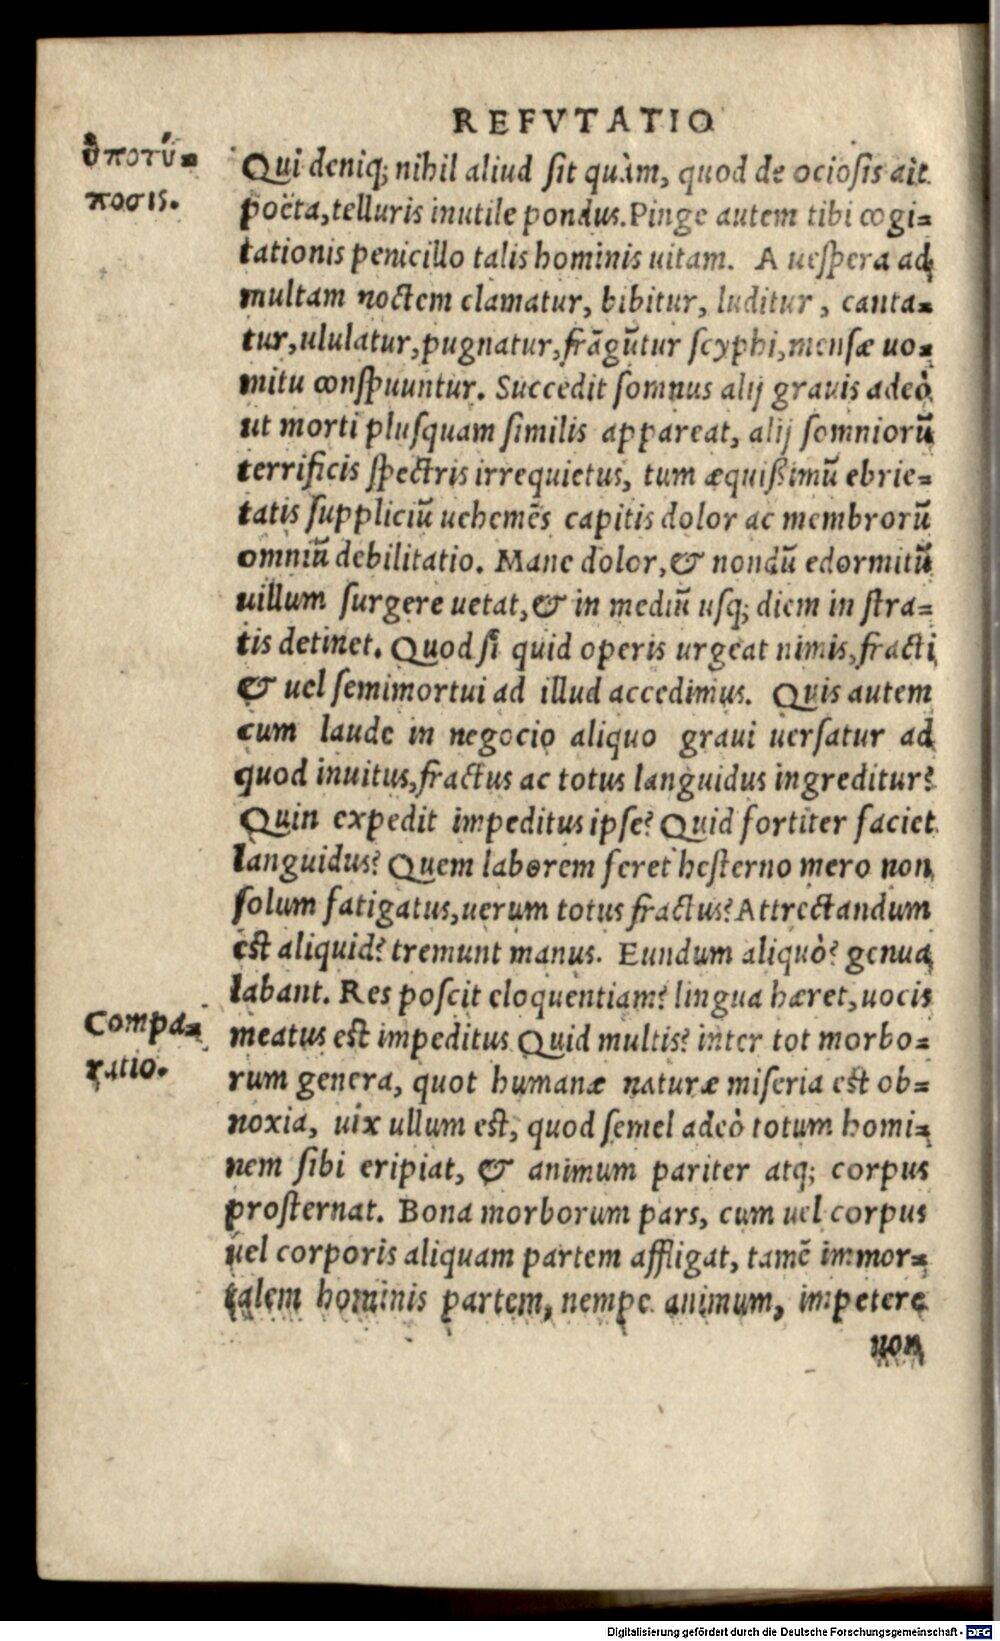 REFVTATIO
ὑποτύ=
πosis.
Qui deniq; nihil aliud ſit quàm, quod de ocioſis ait
poëta, telluris inutile pondus. Pinge autem tibi cogi=
tationis penicillo talis hominis uitam. A ueſpera ad
multam noctem clamatur, bibitur, luditur, canta=
tur, ululatur, pugnatur, frãgũtur ſcyphi, menſæ uo=
mitu conſpuuntur. Succedit ſomnus alij grauis adeò
ut morti pluſquam ſimilis appareat, alij ſomniorũ
terrificis ſpectris irrequietus, tum æquiſsimũ ebrie=
tatis ſuppliciũ uehemẽs capitis dolor ac membrorũ
omniũ debilitatio. Mane dolor, & nondũ edormitũ
uillum ſurgere uetat, & in mediũ uſq; diem in ſtra=
tis detinet. Quod ſi quid operis urgeat nimis, fracti
& uel ſemimortui ad illud accedimus. Quis autem
cum laude in negocio aliquo graui uerſatur ad
quod inuitus, fractus ac totus languidus ingreditur?
Quin expedit impeditus ipſe? Quid fortiter faciet
languidus? Quem laborem feret heſterno mero non
ſolum fatigatus, uerum totus fractus? Attrectandum
eſt aliquid? tremunt manus. Eundum aliquò? genua
labant. Res poſcit eloquentiam? lingua hæret, uocis
Compa=
ratio.
meatus eſt impeditus. Quid multis? inter tot morbo=
rum genera, quot humanæ naturæ miſeria eſt ob=
noxia, uix ullum eſt, quod ſemel adeò totum homi=
nem ſibi eripiat, & animum pariter atq; corpus
proſternat. Bona morborum pars, cum uel corpus
uel corporis aliquam partem affligat, tamẽ immor=
talem hominis partem, nempe animum, impetere
non
Digitalisierung gefördert durch die Deutsche Forschungsgemeinschaft - DFG